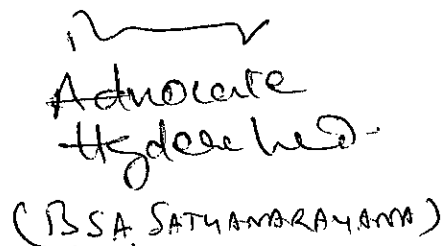 Advocate
Hyderabad.
(BSA. SATYANARAYANA)